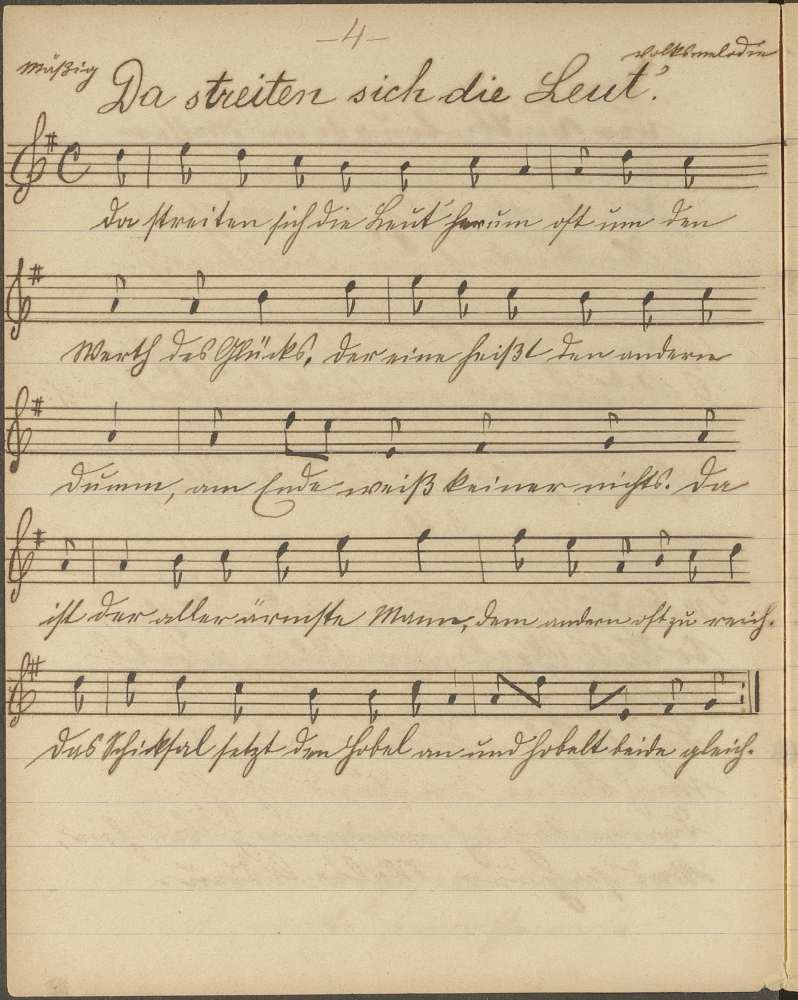 -4-
Mäßig
Volksmelodie
Da streiten sich die Leut'.
Da streiten sich die Leut' herum oft um den
Werth des Glücks, der eine heißt den andern
dumm, am Ende weiß keiner nichts. Da
ist der aller ärmste Mann, dem andern oft zu reich.
Das Schicksal setzt den Hobel an und hobelt beide gleich.